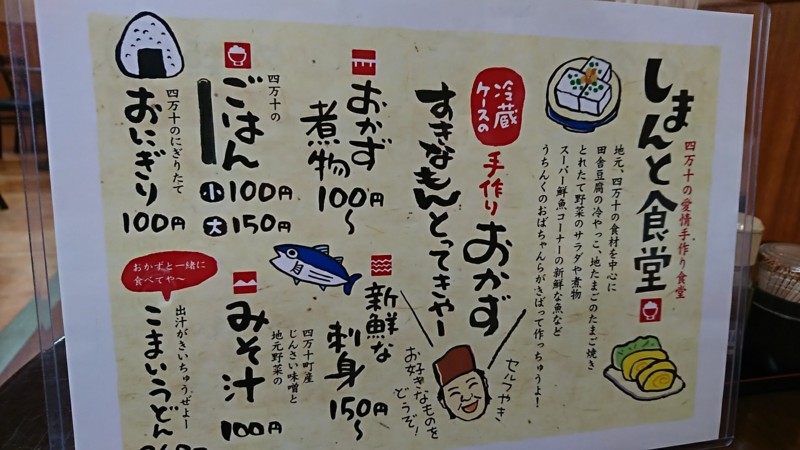 四万十の愛情手作り食堂
しまんと食堂
地元、四万十の食材を中心に
田舎豆腐の冷やっこ、地たまごのたまご焼き
とれたて野菜のサラダや煮物
スーパー鮮魚コーナーの新鮮な魚など
うちんくのおばちゃんらがきばって作っちゅうよ!
冷蔵
ケースの
手作りおかず
すきなもんとってきやー
セルフやき
お好きなものを
どうぞ!
おかず
煮物
100円~
新鮮な
刺身
150円~
四万十の
ごはん
小100円
大150円
四万十町産
じんさい味噌と
地元野菜の
みそ汁
100円
四万十のにぎりたて
おにぎり
100円
おかずと一緒に
食べてや~
出汁がきいちゅうぜよー
こまいうどん